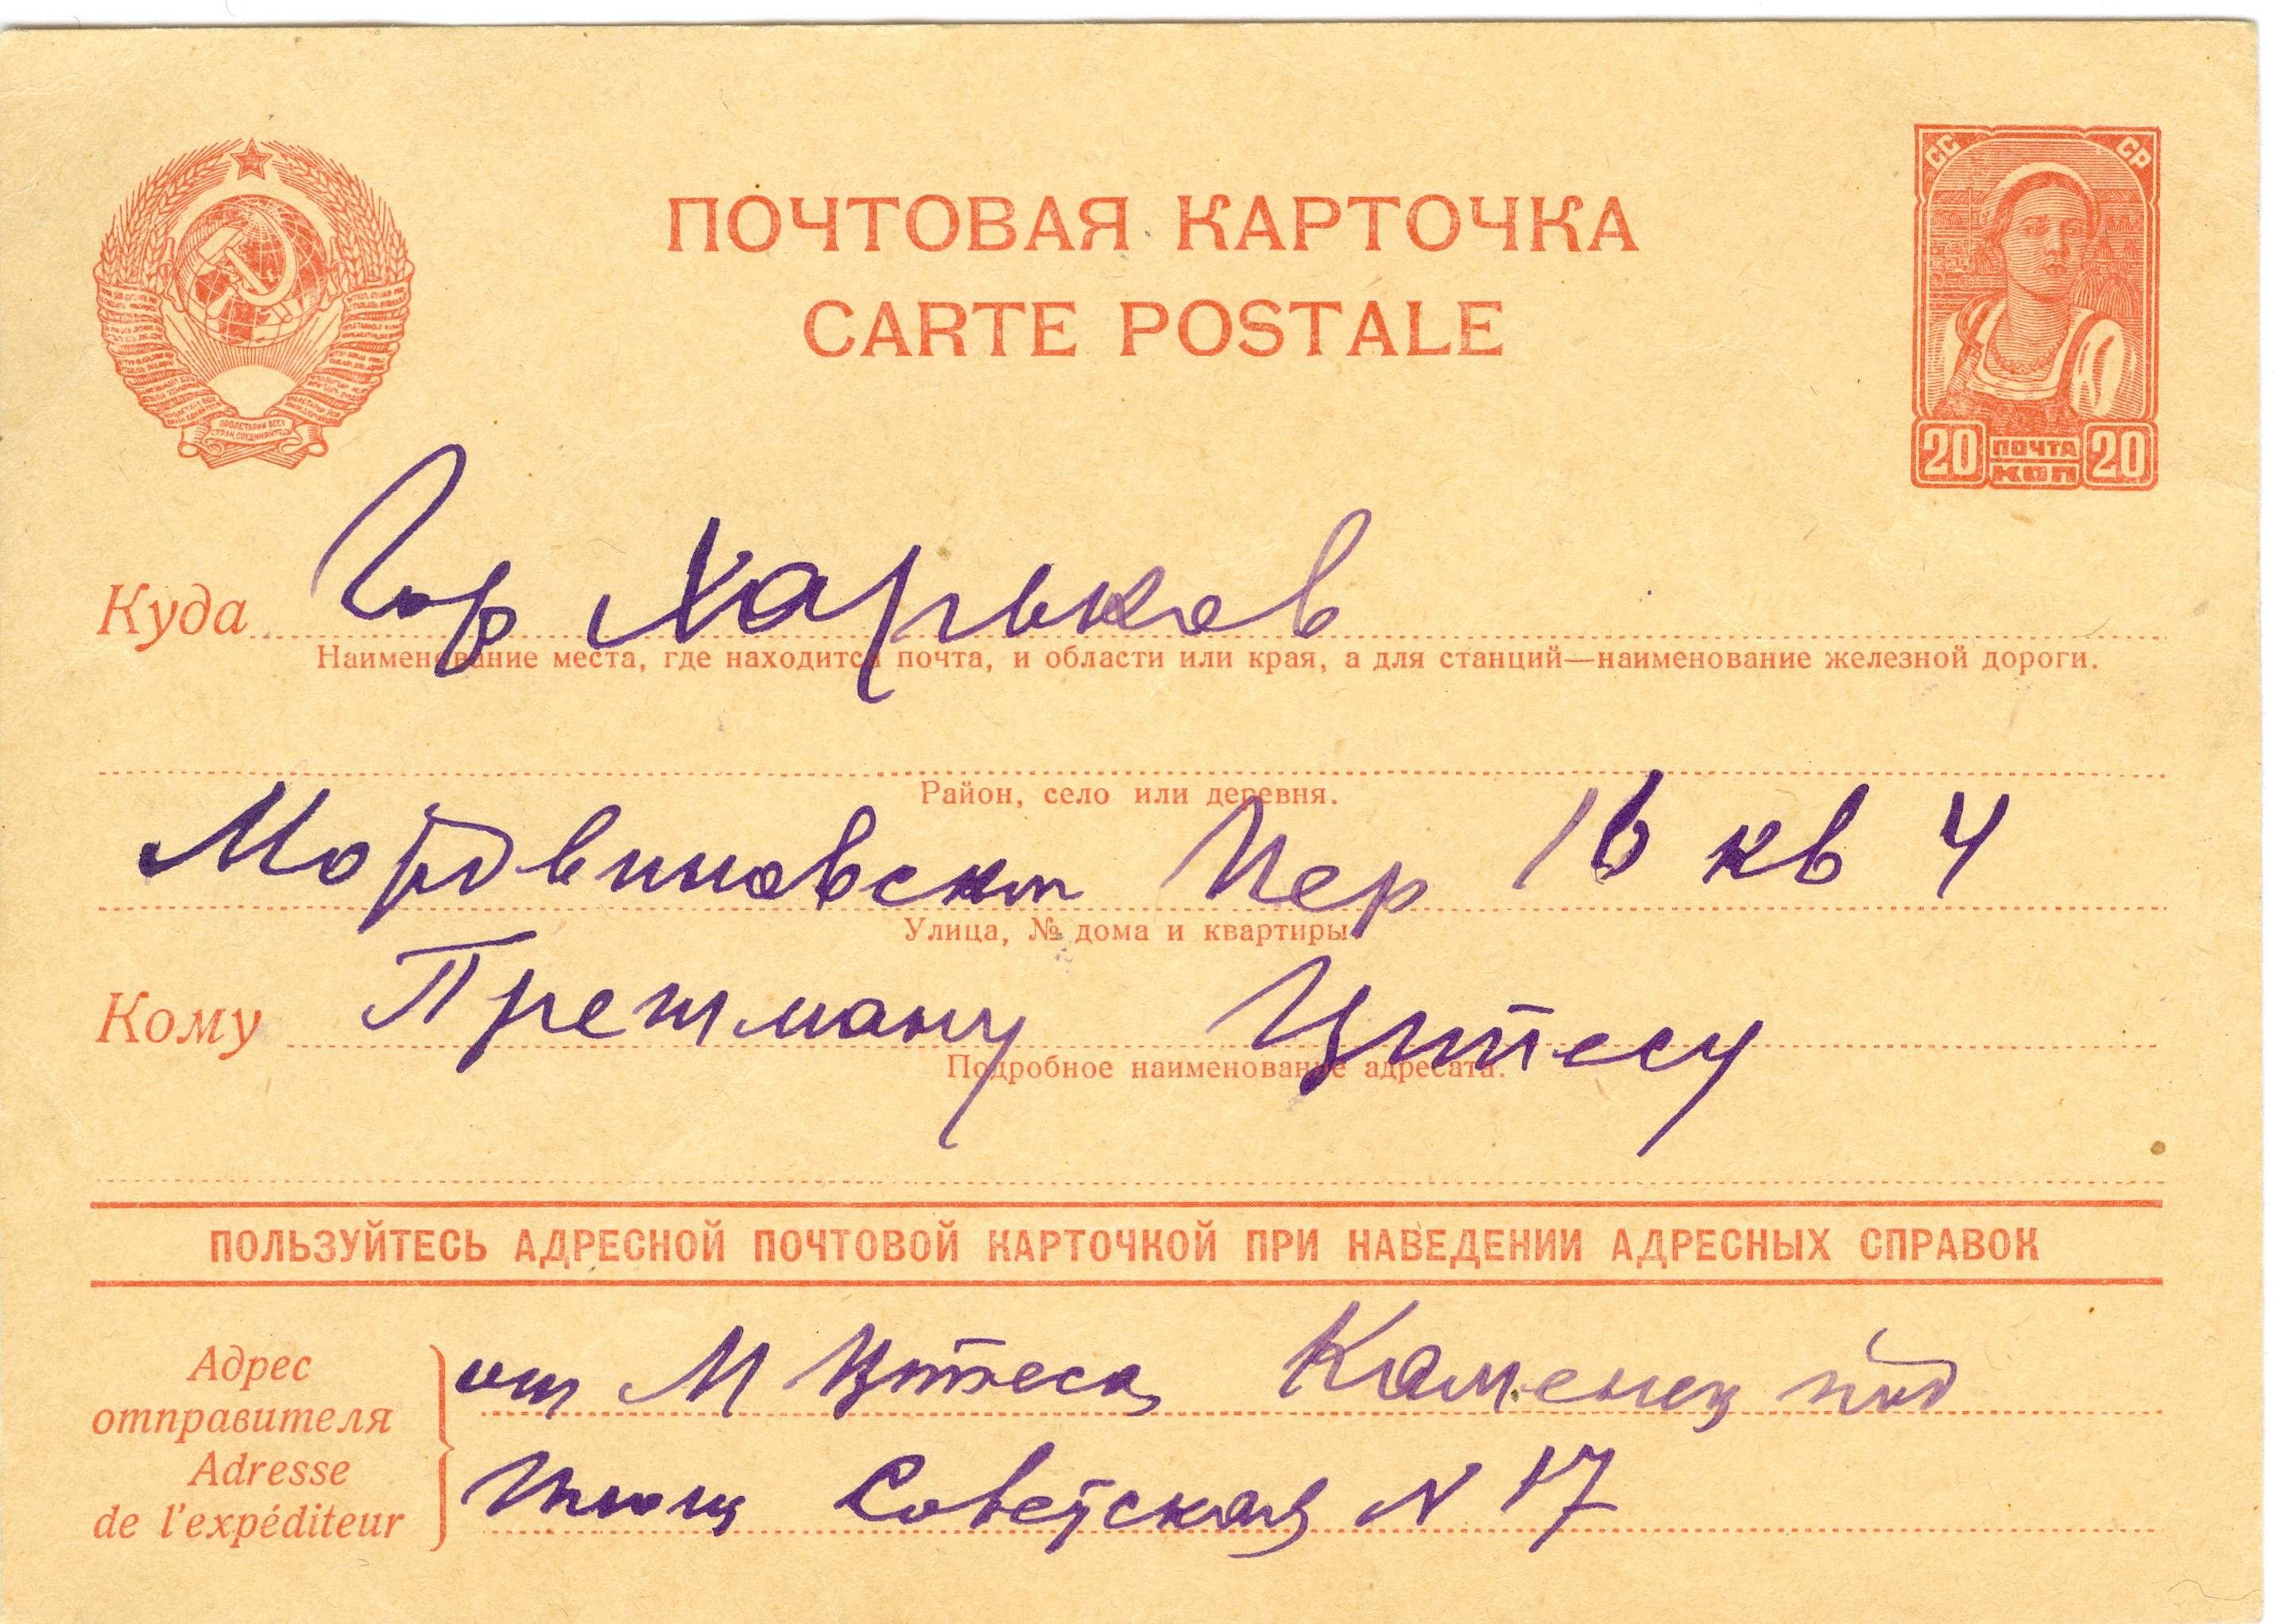 ПОЧТОВАЯ КАРТОЧКА
CARTE POSTALE
СС СР
20 ПОЧТА КОП 20
ПРОЛЕТАРИИ ВСЕХ
СТРАН, СОЕДИНЯЙТЕСЬ
Куда Гор Харьков
Наименование места, где находится почта, и области или края, а для станций—наименование железной дороги.
Район, село или деревня.
Мордвиновский Пер 16 кв 4
Улица, № дома и квартиры.
Кому Претману Цитесу
Подробное наименование адресата.
ПОЛЬЗУЙТЕСЬ АДРЕСНОЙ ПОЧТОВОЙ КАРТОЧКОЙ ПРИ НАВЕДЕНИИ АДРЕСНЫХ СПРАВОК
Адрес
отправителя
Adresse
de l'expéditeur
от М Цитеса Каменец под
Советская N 17